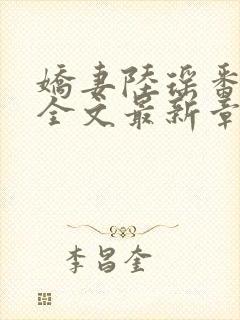 嬌妻陸瑶番
全文最新章
李昌奎